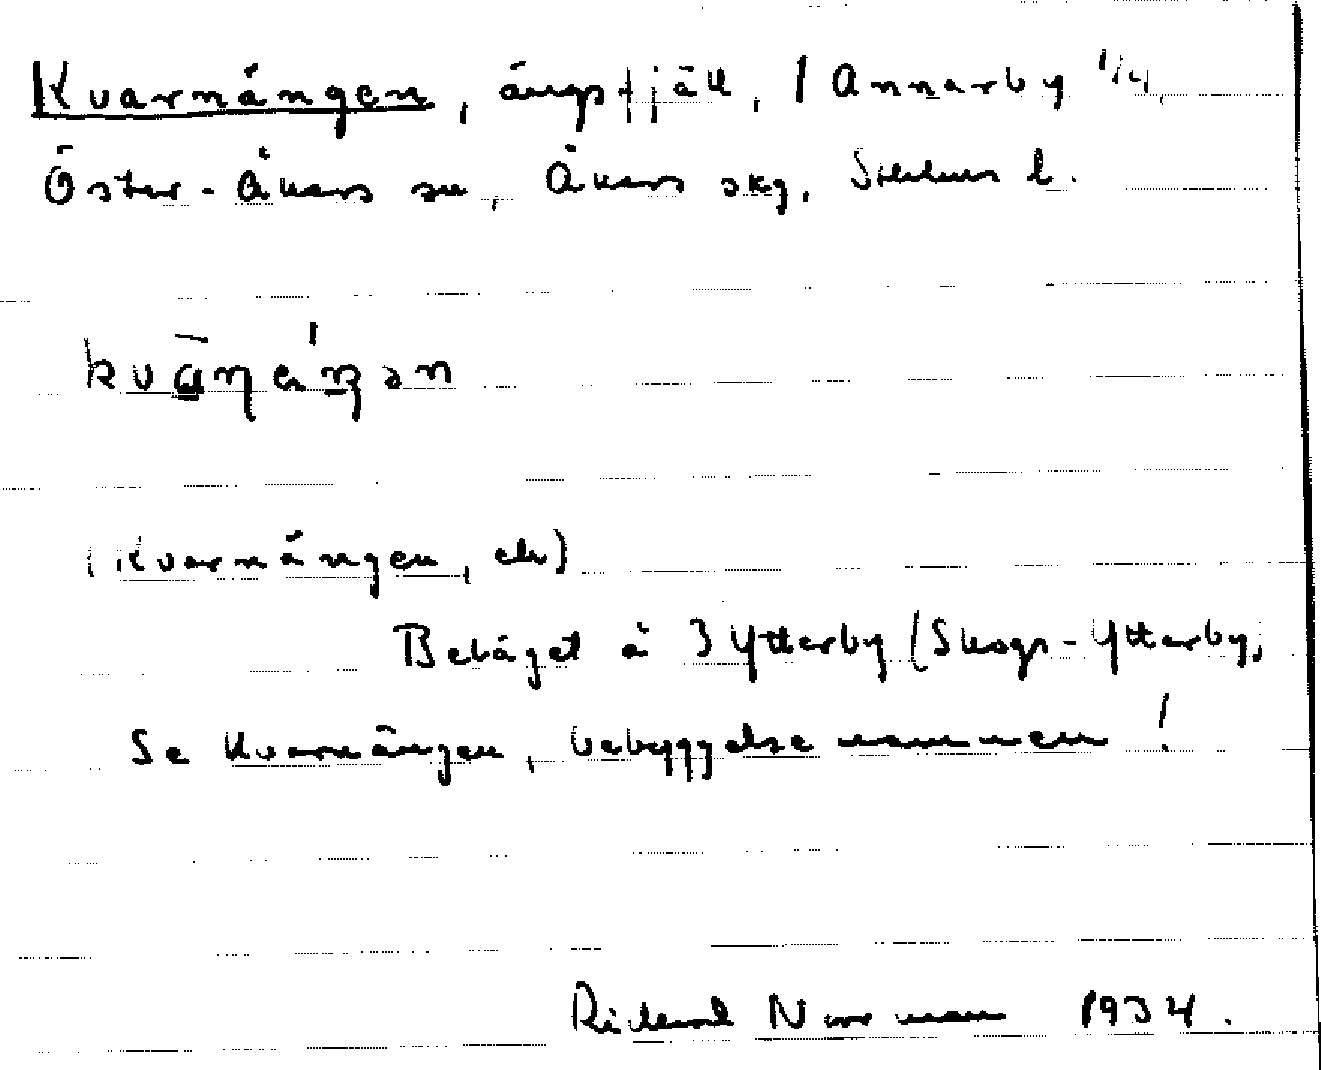 Kvarnängen, ängsfjäll, 1 Annarby 1/4,
Öster-Åkers sn, Åkers skg, Sthlms l.
(Kvarnängen, ek)
Beläget å 3 Ytterby (Skogs-Ytterby,
Se Kvarnängen, bebyggelsenamnen!
Rickard Norrman 1934.